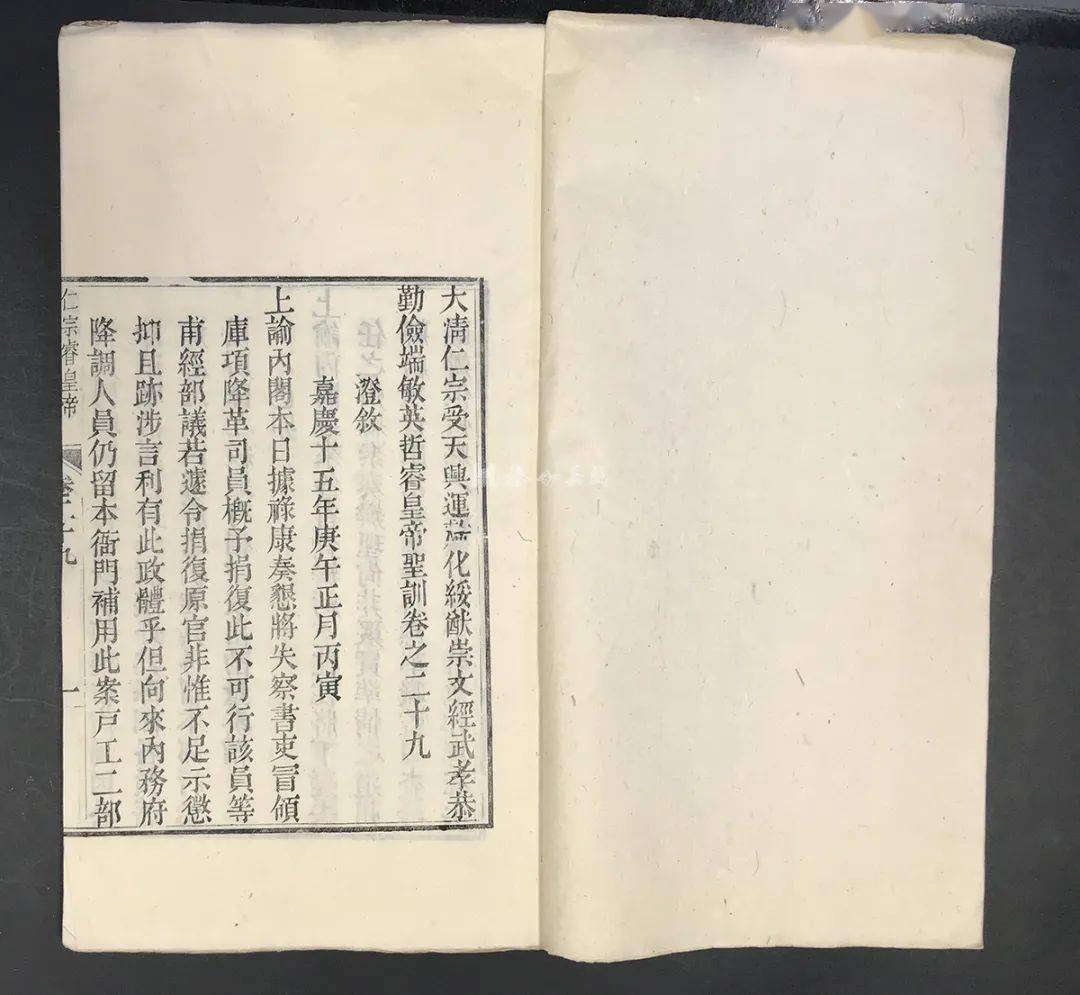 大清仁宗受天興運敷化綏猷崇文經武孝恭
勤儉端敏英哲睿皇帝聖訓卷之二十九
澄敘
嘉慶十五年庚午正月丙寅
上諭內閣本日據祿康奏懇將失察書吏冒領
庫項降革司員概予捐復此不可行該員等
甫經部議若遽令捐復原官非惟不足示懲
抑且跡涉言利有此政體乎但向來內務府
降調人員仍留本衙門補用此案戶工二部
仁宗睿皇帝 卷二十九 一